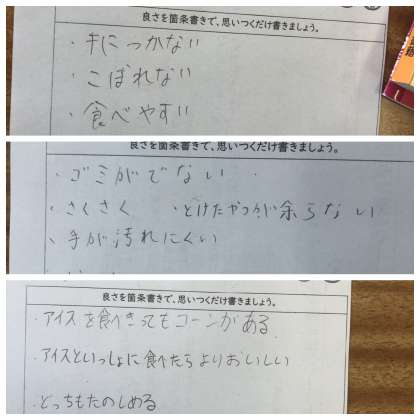 良さを箇条書きで、思いつくだけ書きましょう。
・手につかない
・こぼれない
・食べやすい
良さを箇条書きで、思いつくだけ書きましょう。
・ゴミがでない
・さくさく ・とけたやつが余らない
・手が汚れにくい
良さを箇条書きで、思いつくだけ書きましょう。
・アイスを食べきってもコーンがある
・アイスといっしょに食べたらよりおいしい
・どっちもたのしめる